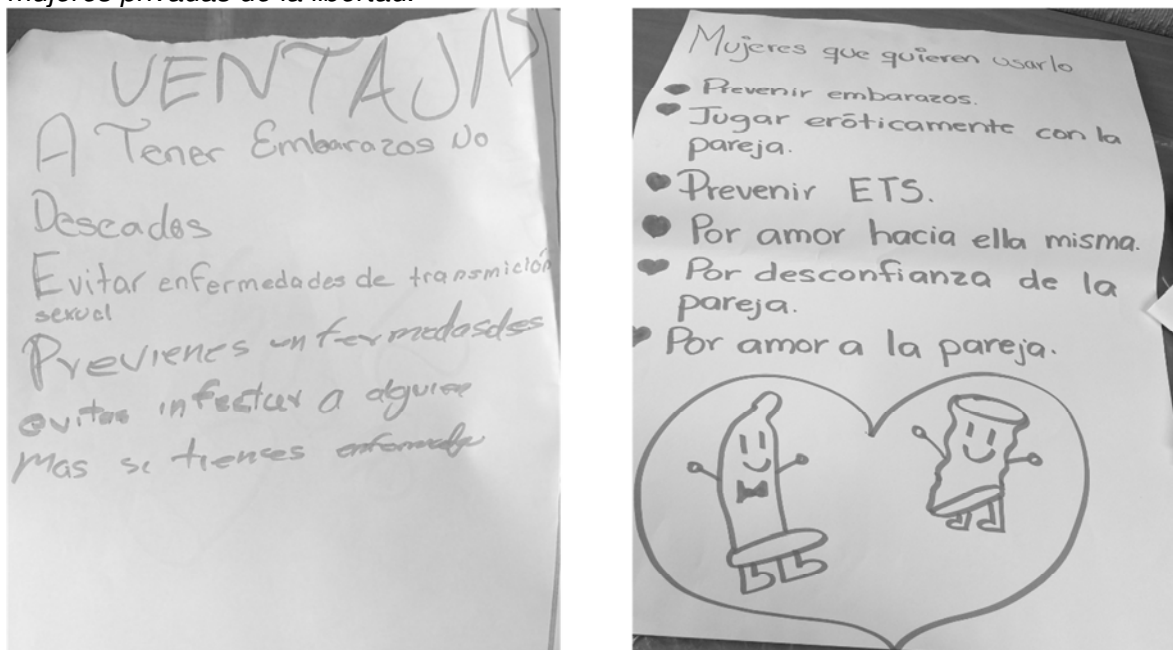 mujeres privadas de la libertad.
VENTAJAS
A Tener Embarazos No
Deseados
Evitar enfermedades de transmición
sexual
Previenes enfermedasdes
evitas infectar a alguien
Mas si tienes
Mujeres que quieren usarlo
Prevenir embarazos.
Jugar eróticamente con la
pareja.
Prevenir ETS.
Por amor hacia ella misma.
Por desconfianza de la
pareja.
Por amor a la pareja.